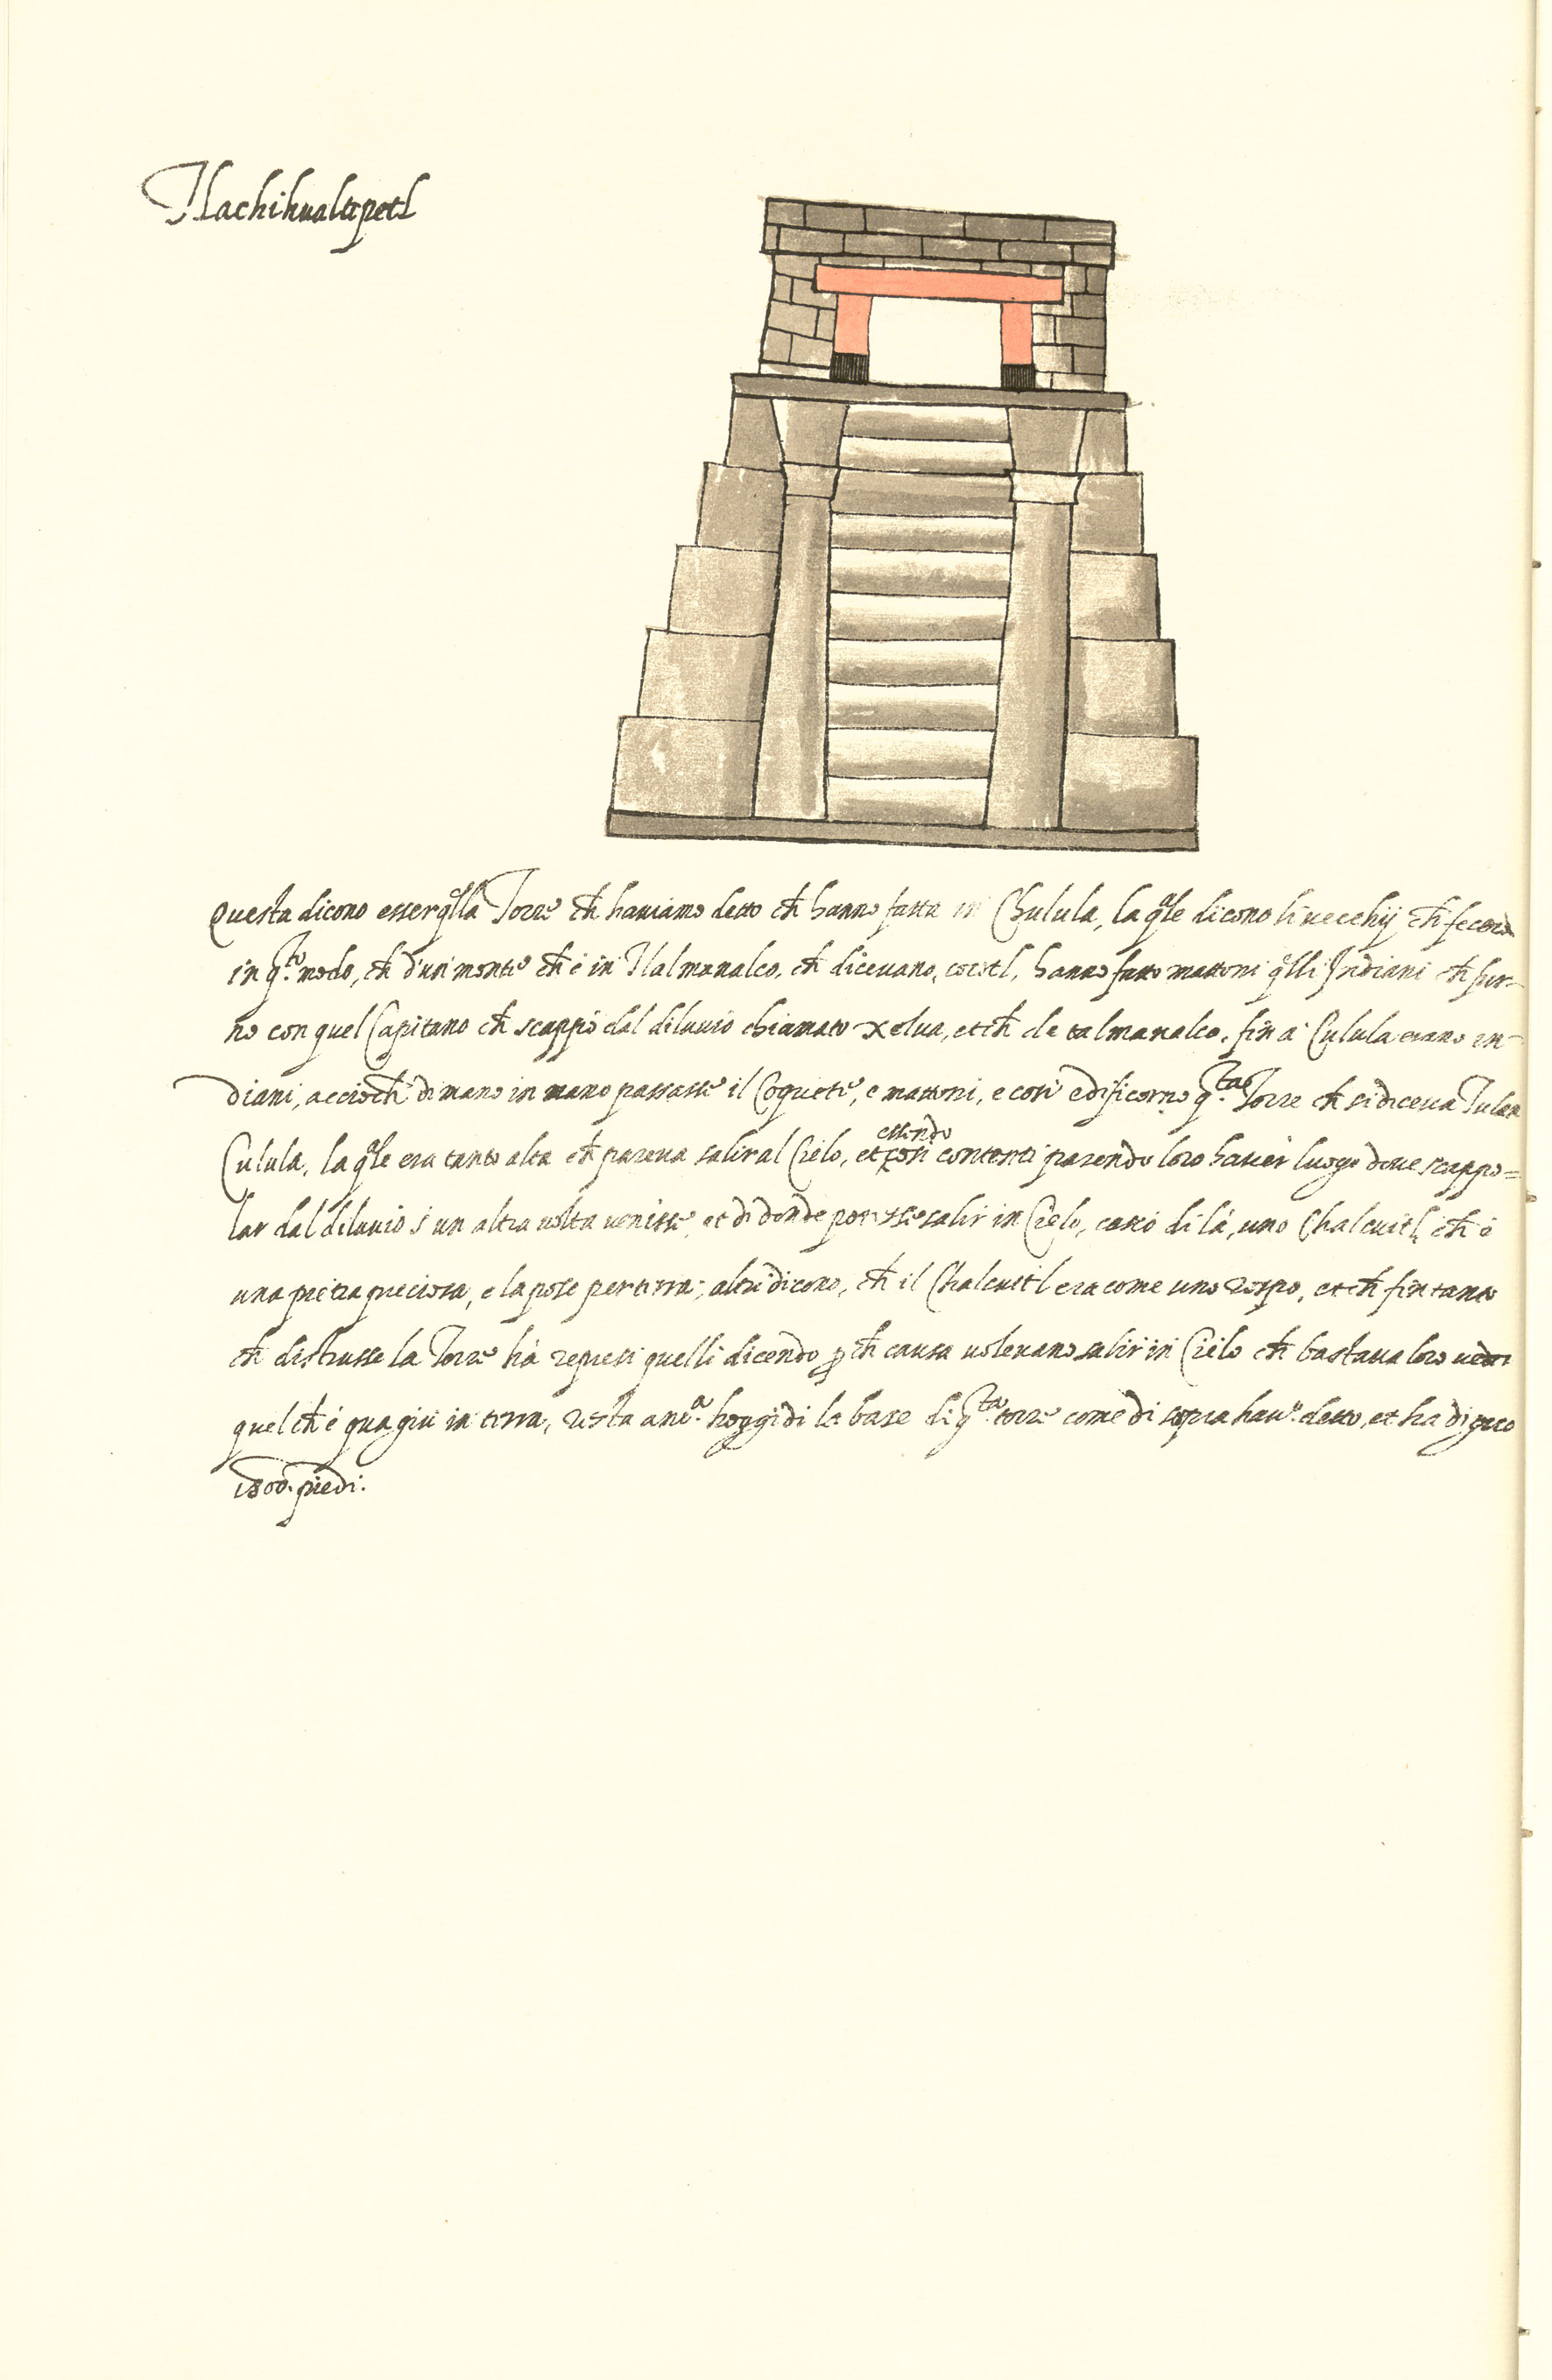 Tlachihualtepetl
Questa dicono esser q̃lla Torre ch̃ haviamo detto ch̃ hanno fatta in Chulula, la q̃le dicono li vecchij ch̃ fecero
in q.to modo, ch̃ d'un monte ch̃ è in Tlalmanalco, ch̃ dicevano, cocotl, hanno fatto mattoni q̃lli Indiani ch̃ fur-
no con quel Capitano ch̃ scappò dal diluvio chiamato xelua, et ch̃ de talmanalco, fin à Culula erano in-
diani, acciochè di mano in mano passasse il Coquete, e mattoni, e cosi edificorno q.ta Torre ch̃ si diceva Tulan
Culula, la q̃le era tanto alta ch̃ pareva salir al Cielo, et essendo cosi contenti parendo loro haver luogo dove scappo=
lar dal diluvio s' un altra volta venisse, et di donde potesse salir in Cielo, cascò di là, uno Chalcuitl, ch̃ è
una pietra preciosa, e la pose per terra; altri dicono, ch̃ il Chalcuitl era come uno rospo, et ch̃ fin tanto
ch̃ distrusse la Torre hà represi quelli dicendo p ch̃ causa volevano salir in Cielo ch̃ bastava loro veder
quel ch̃ è qua giù in terra, resta anc.a hoggidi la base di q.ta torre come di sopra hav.o detto, et ha di giro
1800. piedi.